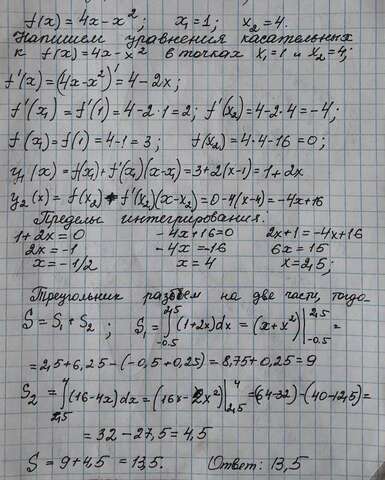 f(x) = 4x - x²; x₁ = 1; x₂ = 4.
Напишем уравнения касательных
к f(x) = 4x - x² в точках x₁ = 1 и x₂ = 4;
f'(x) = (4x - x²)' = 4 - 2x;
f'(x₁) = f'(1) = 4 - 2·1 = 2; f'(x₂) = 4 - 2·4 = -4;
f(x₁) = f(1) = 4 - 1 = 3; f(x₂) = 4·4 - 16 = 0;
y₁(x) = f(x₁) + f'(x₁)(x - x₁) = 3 + 2(x - 1) = 1 + 2x
y₂(x) = f(x₂) + f'(x₂)(x - x₂) = 0 - 4(x - 4) = -4x + 16
Пределы интегрирования:
1 + 2x = 0 -4x + 16 = 0 2x + 1 = -4x + 16
2x = -1 -4x = -16 6x = 15
x = -1/2 x = 4 x = 2,5;
Треугольник разобьем на две части, тогда
S = S₁ + S₂ ; S₁ = ∫_{-0.5}^{2,5} (1 + 2x)dx = (x + x²)|_{-0.5}^{2,5} =
= 2,5 + 6,25 - (-0,5 + 0,25) = 8,75 + 0,25 = 9
S₂ = ∫_{2,5}^{4} (16 - 4x)dx = (16x - 2x²)|_{2,5}^{4} = (64 - 32) - (40 - 12,5) =
= 32 - 27,5 = 4,5
S = 9 + 4,5 = 13,5. Ответ: 13,5